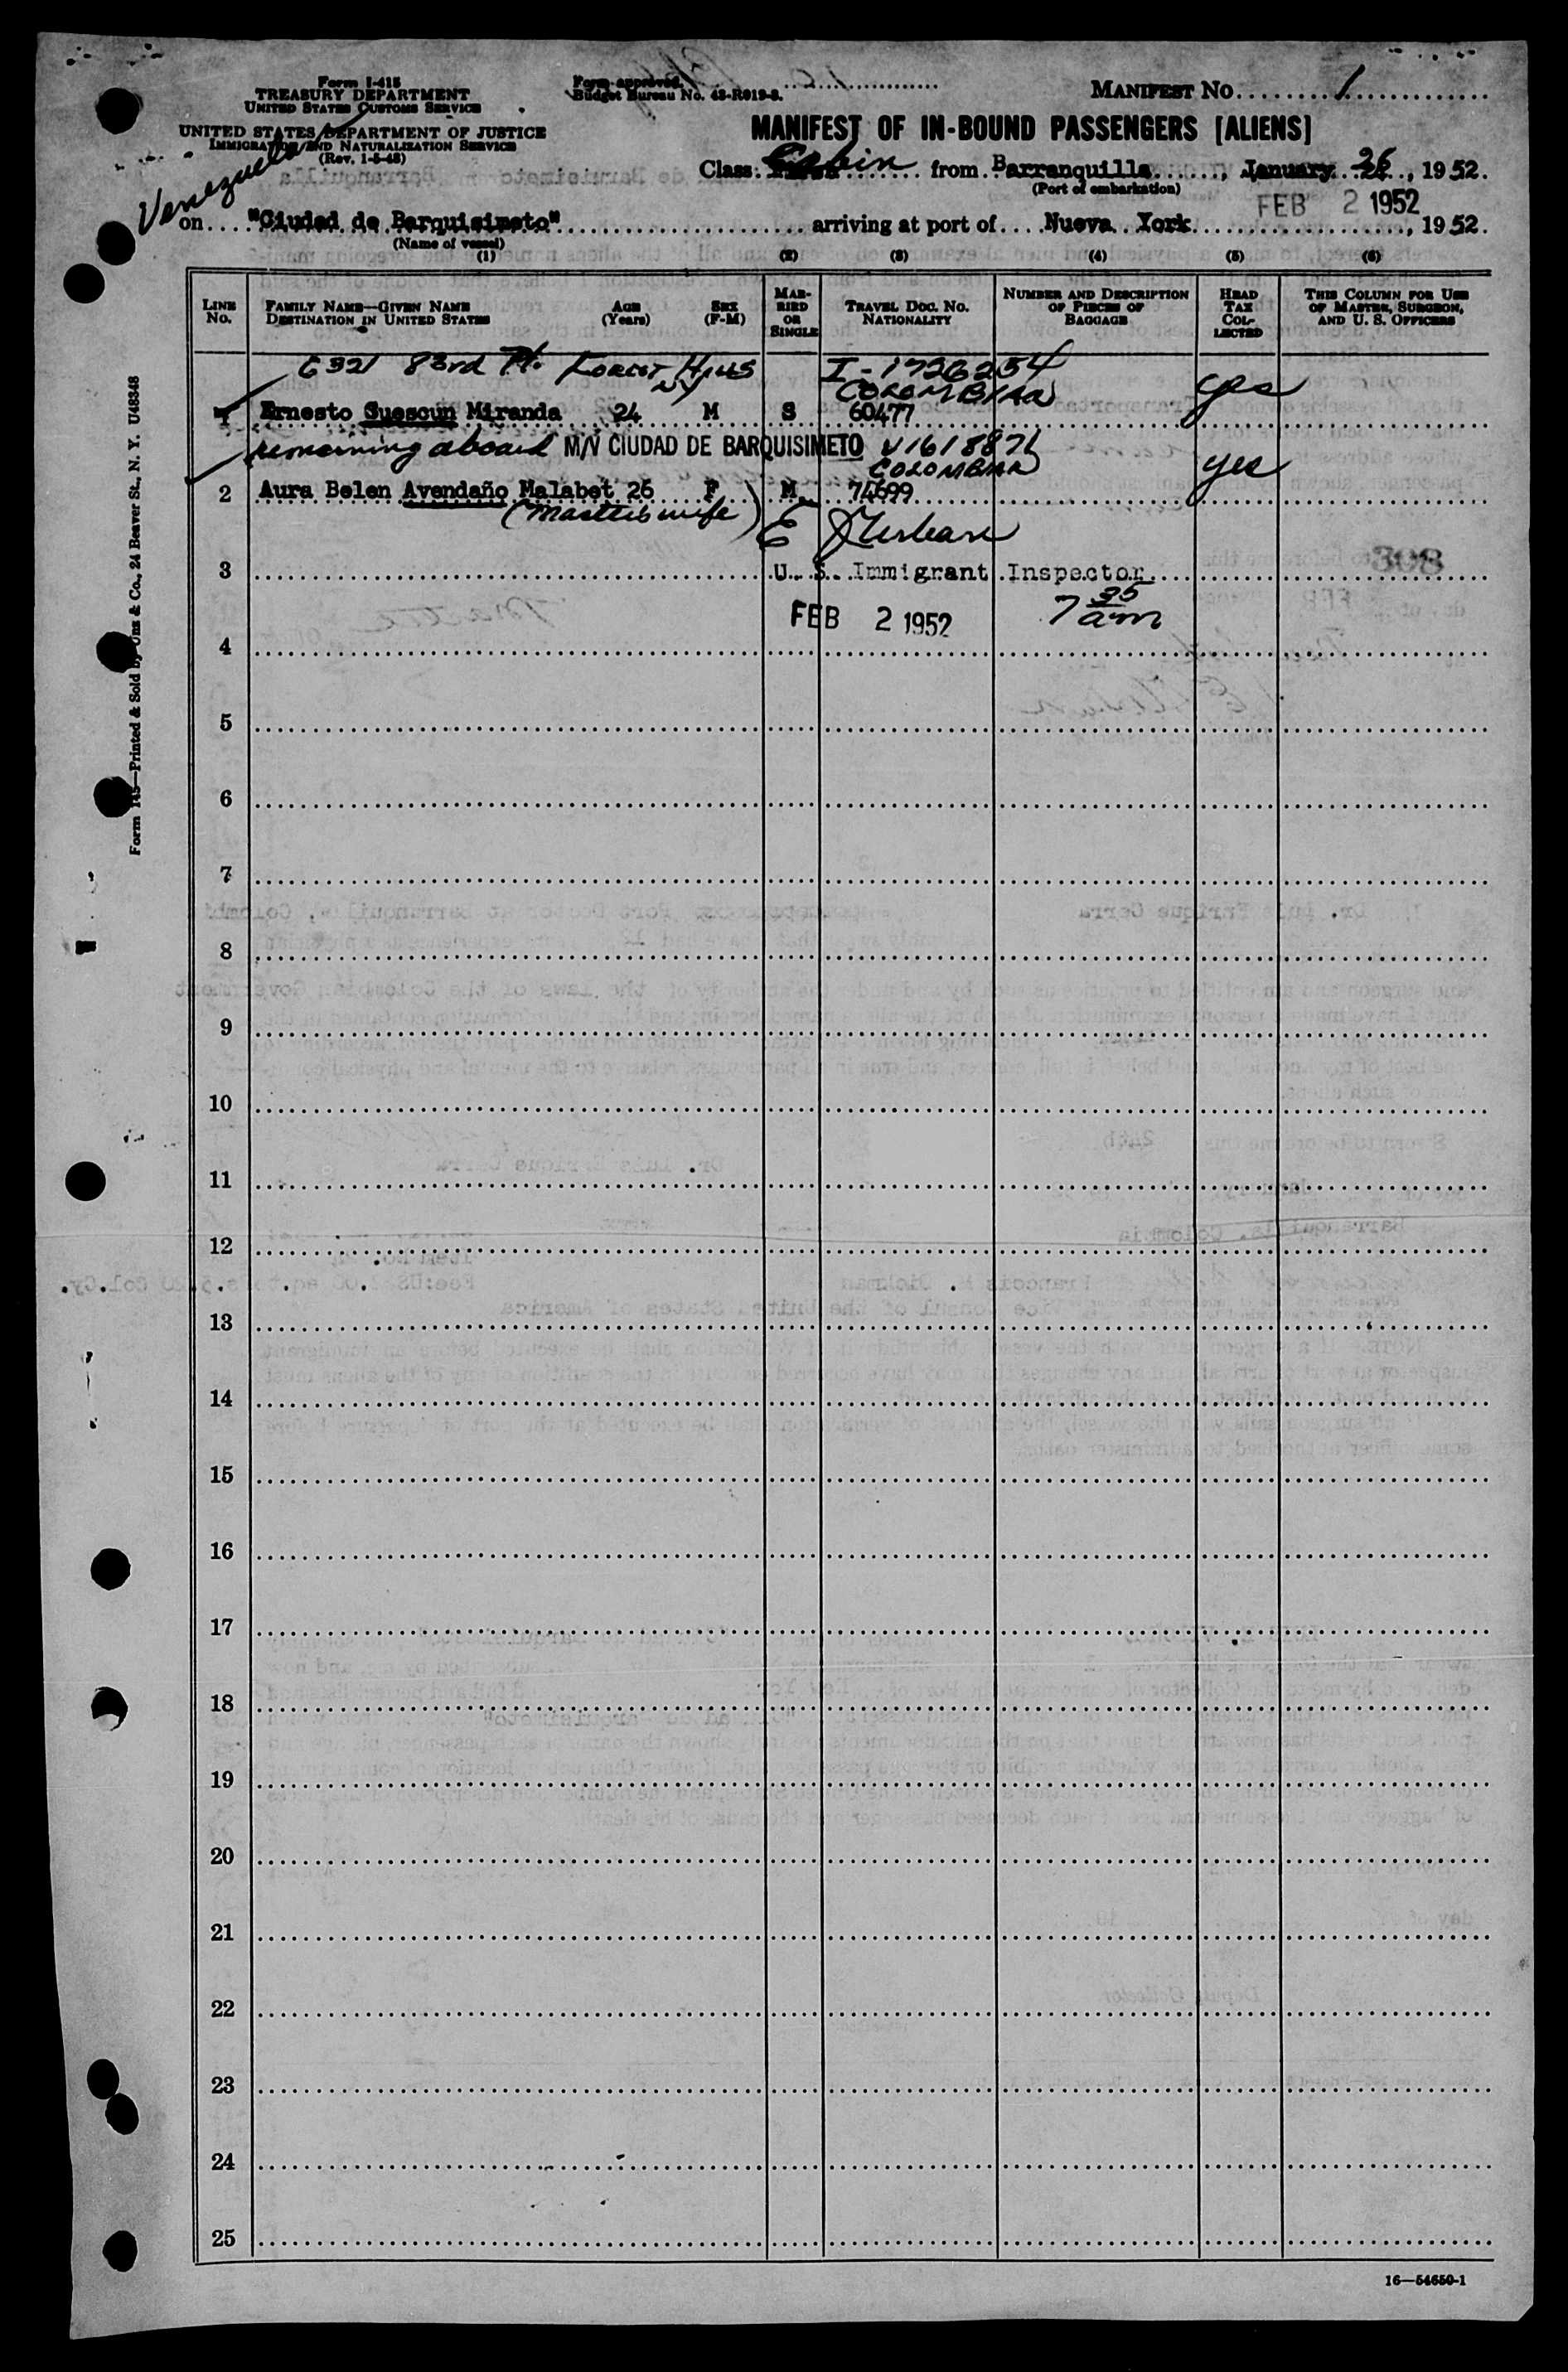 Form I-415
TREASURY DEPARTMENT
UNITED STATES CUSTOMS SERVICE
UNITED STATES DEPARTMENT OF JUSTICE
IMMIGRATION AND NATURALIZATION SERVICE
(Rev. 1-5-48)
Venezuela
Form approved.
Budget Bureau No. 43-R019-3.
MANIFEST NO. 1
MANIFEST OF IN-BOUND PASSENGERS [ALIENS]
Class: Cabin from Barranquilla, January 26, 1952.
(Port of embarkation)
FEB 2 1952
on "Ciudad de Barquisimeto" arriving at port of Nueva York, 1952.
(Name of vessel)
(1) (2) (3) (4) (5) (6)
LINE NO.
FAMILY NAME—GIVEN NAME
DESTINATION IN UNITED STATES
AGE (Years)
SEX (F-M)
MARRIED OR SINGLE
TRAVEL DOC. NO.
NATIONALITY
NUMBER AND DESCRIPTION OF PIECES OF BAGGAGE
HEAD TAX COLLECTED
THIS COLUMN FOR USE OF MASTER, SURGEON, AND U. S. OFFICERS
6321 83rd Pl. FOREST HILLS NY I-1726254
COLOMBIAN yes
1 Ernesto Guescun Miranda 24 M S 60477
remaining aboard M/V CIUDAD DE BARQUISIMETO V1618871
COLOMBIAN yes
2 Aura Belen Avendaño Malabet 26 F M 74699
(Master's wife)
3 U. S. Immigrant Inspector 308
FEB 2 1952 7 35 am
4
5
6
7
8
9
10
11
12
13
14
15
16
17
18
19
20
21
22
23
24
25
16—54650-1
Form 145—Printed & Sold by Unz & Co., 24 Beaver St., N. Y. U48348